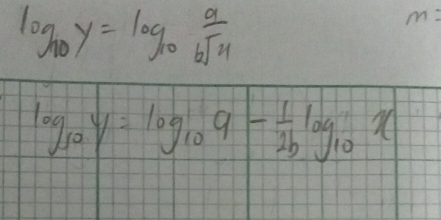 log₁₀ y = log₁₀ a/(b√x) m =
log₁₀ y = log₁₀ a - 1/(2b) log₁₀ x